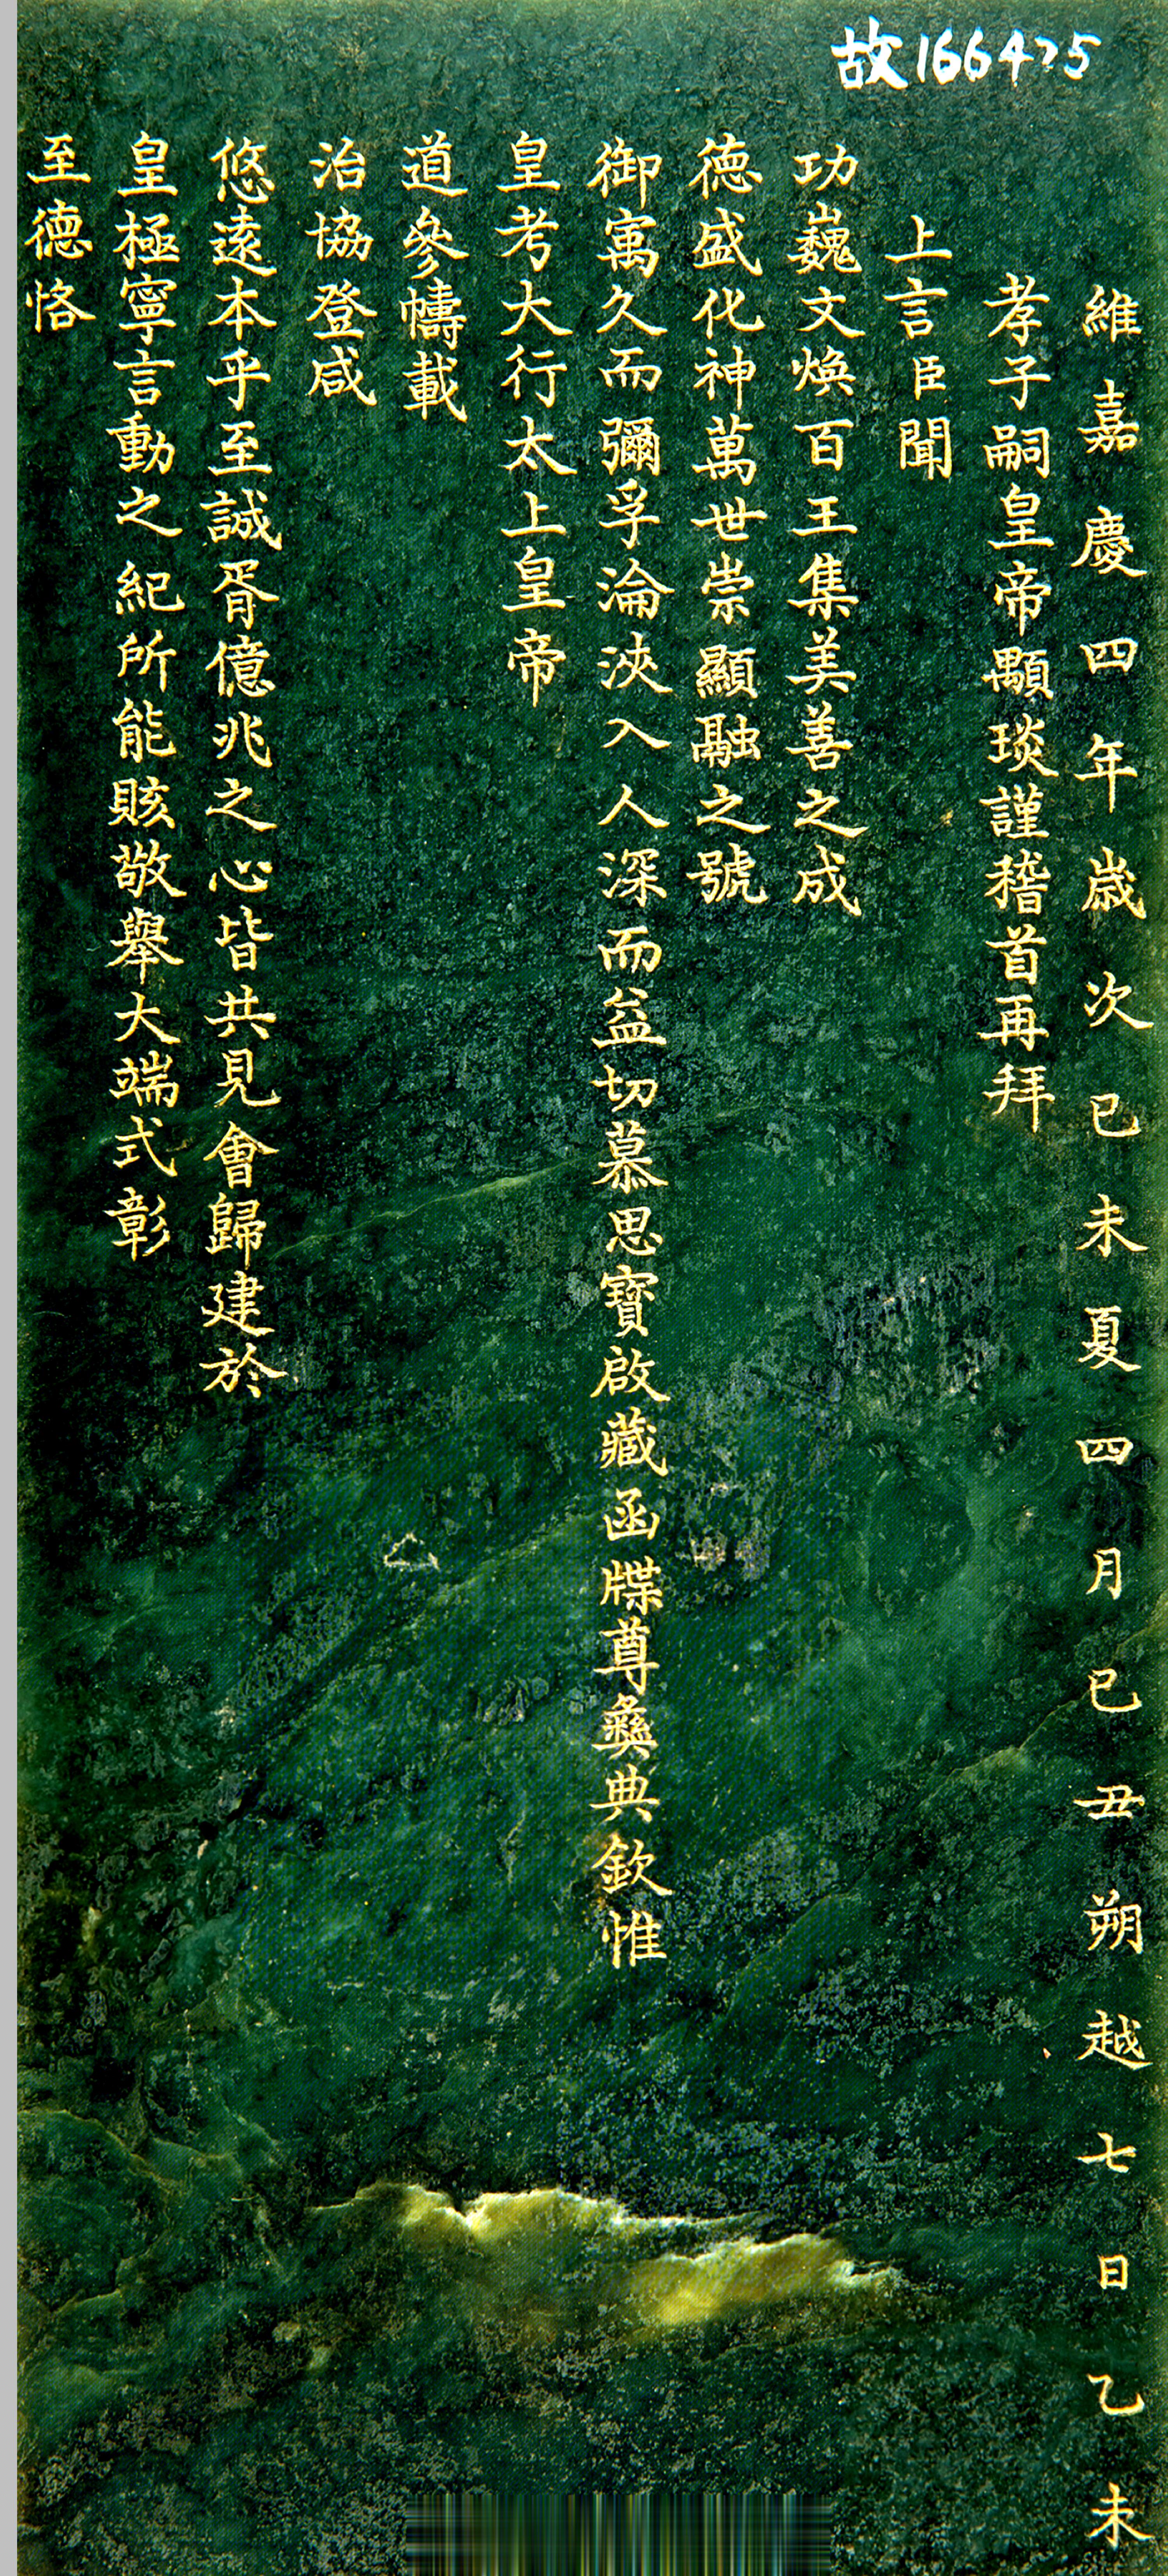 故166475
維嘉慶四年歲次己未夏四月己丑朔越七日乙未
孝子嗣皇帝顒琰謹稽首再拜
上言臣聞
功巍文煥百王集美善之成
德盛化神萬世崇顯融之號
御㝢久而彌孚淪浹入人深而益切慕思寶啟藏函牒尊彝典欽惟
皇考大行太上皇帝
道參幬載
治協登咸
悠遠本乎至誠胥億兆之心皆共見會歸建於
皇極寧言動之紀所能賅敬舉大端式彰
至德恪